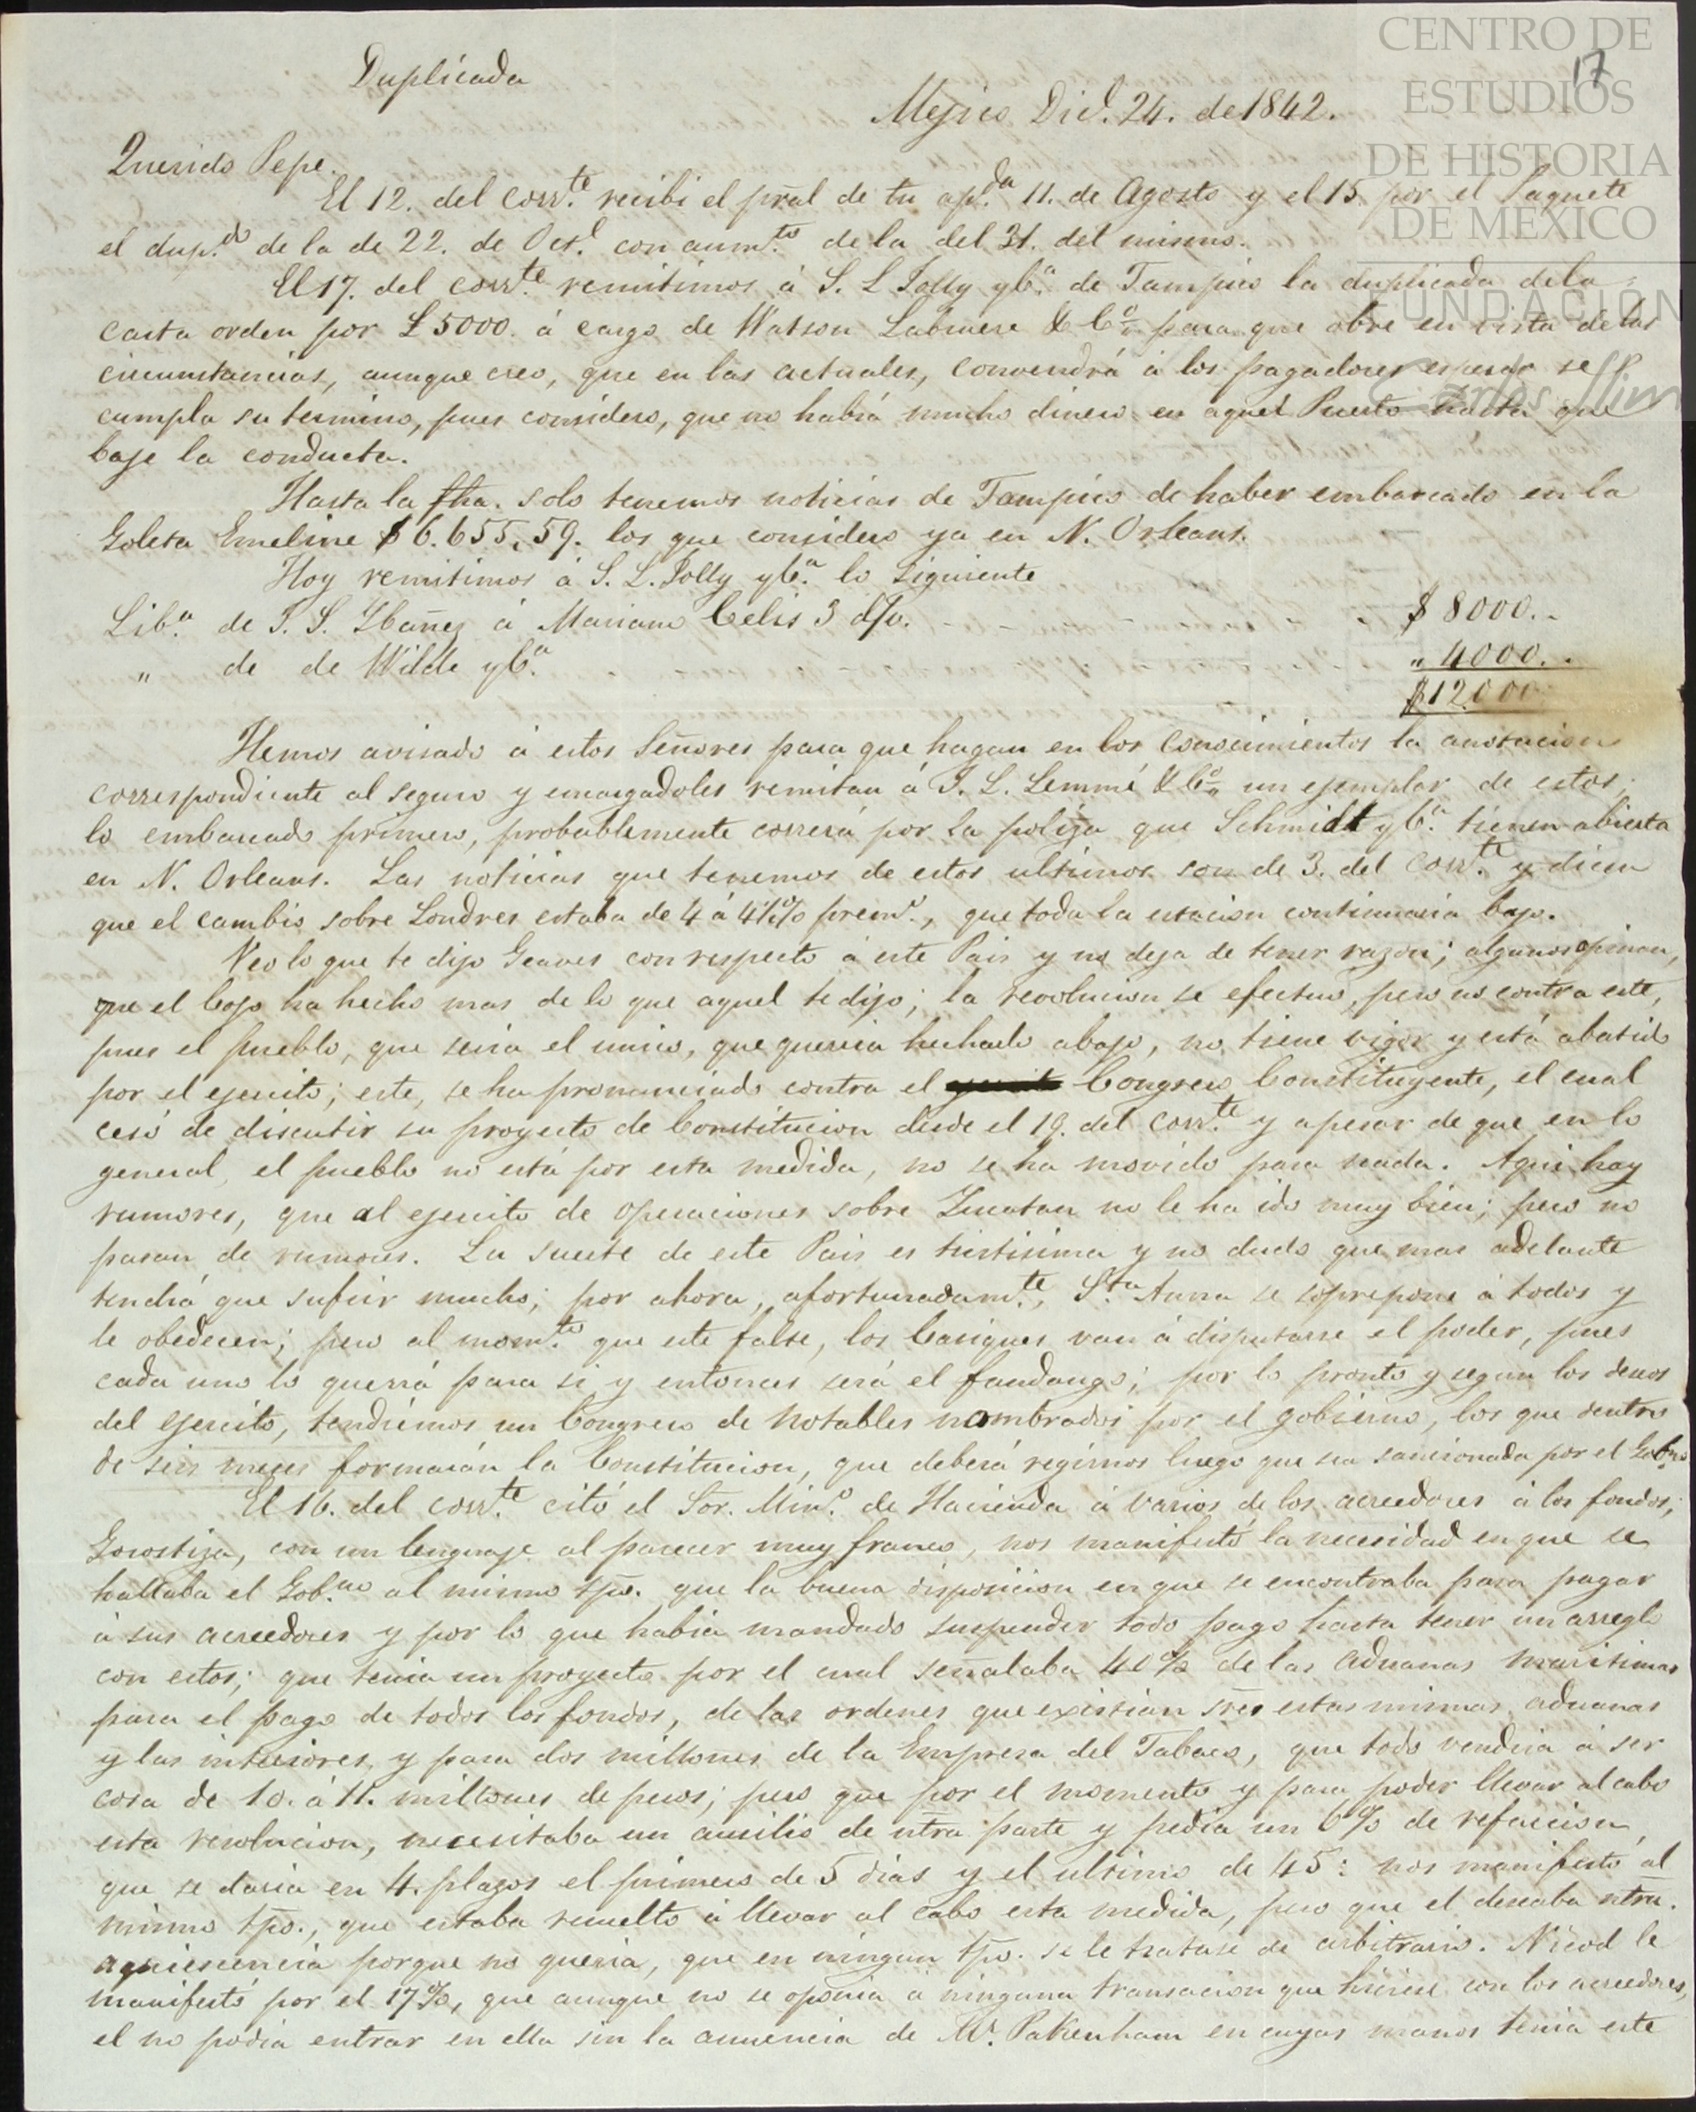 CENTRO DE
ESTUDIOS
DE HISTORIA
DE MEXICO
FUNDACIÓN
Carlos Slim
17
Duplicada
Mejico Dic.e 24. de 1842.
Querido Pepe.
El 12. del corr.te recibi el pral de tu ap.da 11. de Agosto y el 15. por el Paquete
el dup.do de la de 22. de Oct.e con aum.to de la del 31. del mismo.
El 17. del corr.te remitimos á S. L. Jolly y C.a de Tampico la duplicada de la
carta orden por £5000. á cargo de Watson Labruere & Co. para que obre en vista de las
circunstancias, aunque creo, que en las actuales, convendrá á los pagadores esperar se
cumpla su termino, pues considero, que no habrá mucho dinero en aquel Puerto hasta que
baje la conducta.
Hasta la fha. solo tenemos noticias de Tampico de haber embarcado en la
Goleta Emeline $6.655,59. los que considero ya en N. Orleans.
Hoy remitimos á S. L. Jolly y C.a lo siguiente
Lib.a de J. S. Ybañez á Mariano Celis 3 d/v. $8000..
" de de Wilde y C.a " 4000..
$12.000
Hemos avisado á estos Señores para que hagan en los conocimientos la anotacion
correspondiente al seguro y encargadoles remitan á J. L. Lemmé & Co. un ejemplar de estos;
lo embarcado primero, probablemente correrá por la poliza que Schmidt y C.a tienen abierta
en N. Orleans. Las noticias que tenemos de estos ultimos son de 3. del corr.te y dicen
que el cambio sobre Londres estaba de 4 á 4½% prem.o, que toda la estacion continuaria bajo.
Veo lo que te dijo Geaves con respecto á este Pais y no deja de tener razon; algunos opinan,
que el Cojo ha hecho mas de lo que aquel te dijo; la revolucion se efectuó, pero no contra este,
pues el pueblo, que seria el unico, que queria hecharlo abajo, no tiene vigor y está abatido
por el ejercito; este, se ha pronunciado contra el Congreso Constituyente, el cual
cesó de discutir su proyecto de Constitucion desde el 19. del corr.te y apesar de que en lo
general, el pueblo no está por esta medida, no se ha movido para nada. Aqui hay
rumores, que al ejercito de operaciones sobre Yucatan no le ha ido muy bien; pero no
pasan de rumores. La suerte de este Pais es tristisima y no dudo que mas adelante
tendrá que sufrir mucho; por ahora, afortunadam.te, S.ta Anna se soprepone á todos y
le obedecen; pero al mom.to que este falte, los Casiques van á disputarse el poder, pues
cada uno lo querrá para si y entonces será el fandango; por lo pronto y segun los deseos
del ejercito, tendremos un Congreso de Notables nombrados por el gobierno, los que dentro
de seis meses formarán la Constitucion, que deberá regirnos luego que sea sancionada por el Gob.no
El 16. del corr.te citó el Sor. Min.o de Hacienda á varios de los acreedores á los fondos;
Gorostiza, con un lenguaje al parecer muy franco, nos manifestó la necesidad en que se
hallaba el Gob.no al mismo tpo. que la buena disposicion en que se encontraba para pagar
á sus acreedores y por lo que habia mandado suspender todo pago hasta tener un arreglo
con estos; que tenia un proyecto por el cual señalaba 40% de las aduanas maritimas
para el pago de todos los fondos, de las ordenes que existian sres estas mismas aduanas
y las interiores, y para dos millones de la Empresa del Tabaco, que todo vendria á ser
cosa de 10. á 11. millones de pesos; pero que por el momento y para poder llevar al cabo
esta resolucion, necesitaba un ausilio de ntra parte y pedia un 6% de refaccion,
que se daria en 4. plazos el primero de 5 dias y el ultimo de 45: nos manifestó al
mismo tpo., que estaba resuelto á llevar al cabo esta medida, pero que el deseaba ntra.
aquiescencia porque no queria, que en ningun tpo. se le tratase de arbitrario. Nicod le
manifestó por el 17%, que aunque no se oponia á ninguna transacion que hiciese con los acreedores,
el no podia entrar en ella sin la anuencia de Mr. Pakenham en cuyas manos tenia este